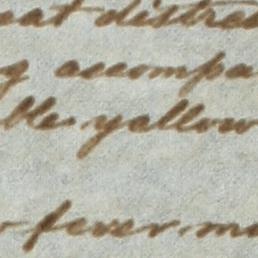 eat distres
g accompa
ble yellow
fever ma